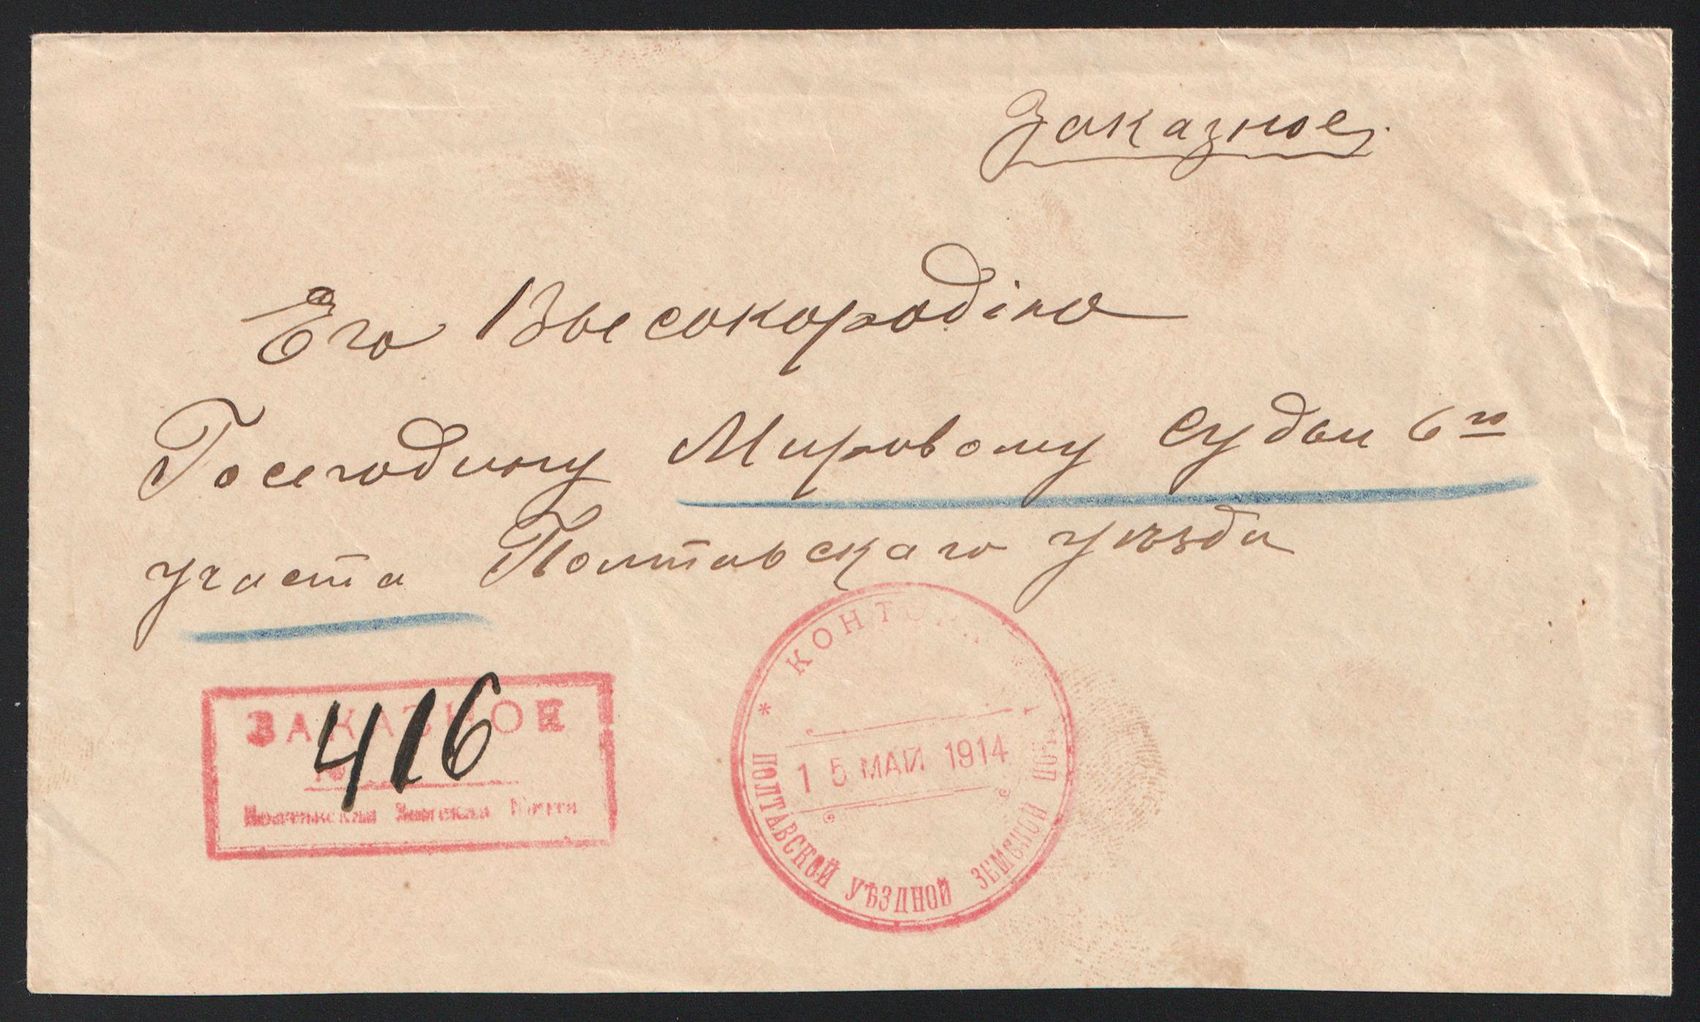 Заказное.
Его Высокородію
Господину Мировому Судьи 6го
участа Полтавскаго уѣзда
ЗАКАЗНОЕ
416
Полтавская Земская Почта
КОНТОРА
15 МАЙ 1914
ПОЛТАВСКОЙ УѢЗДНОЙ ЗЕМСКОЙ